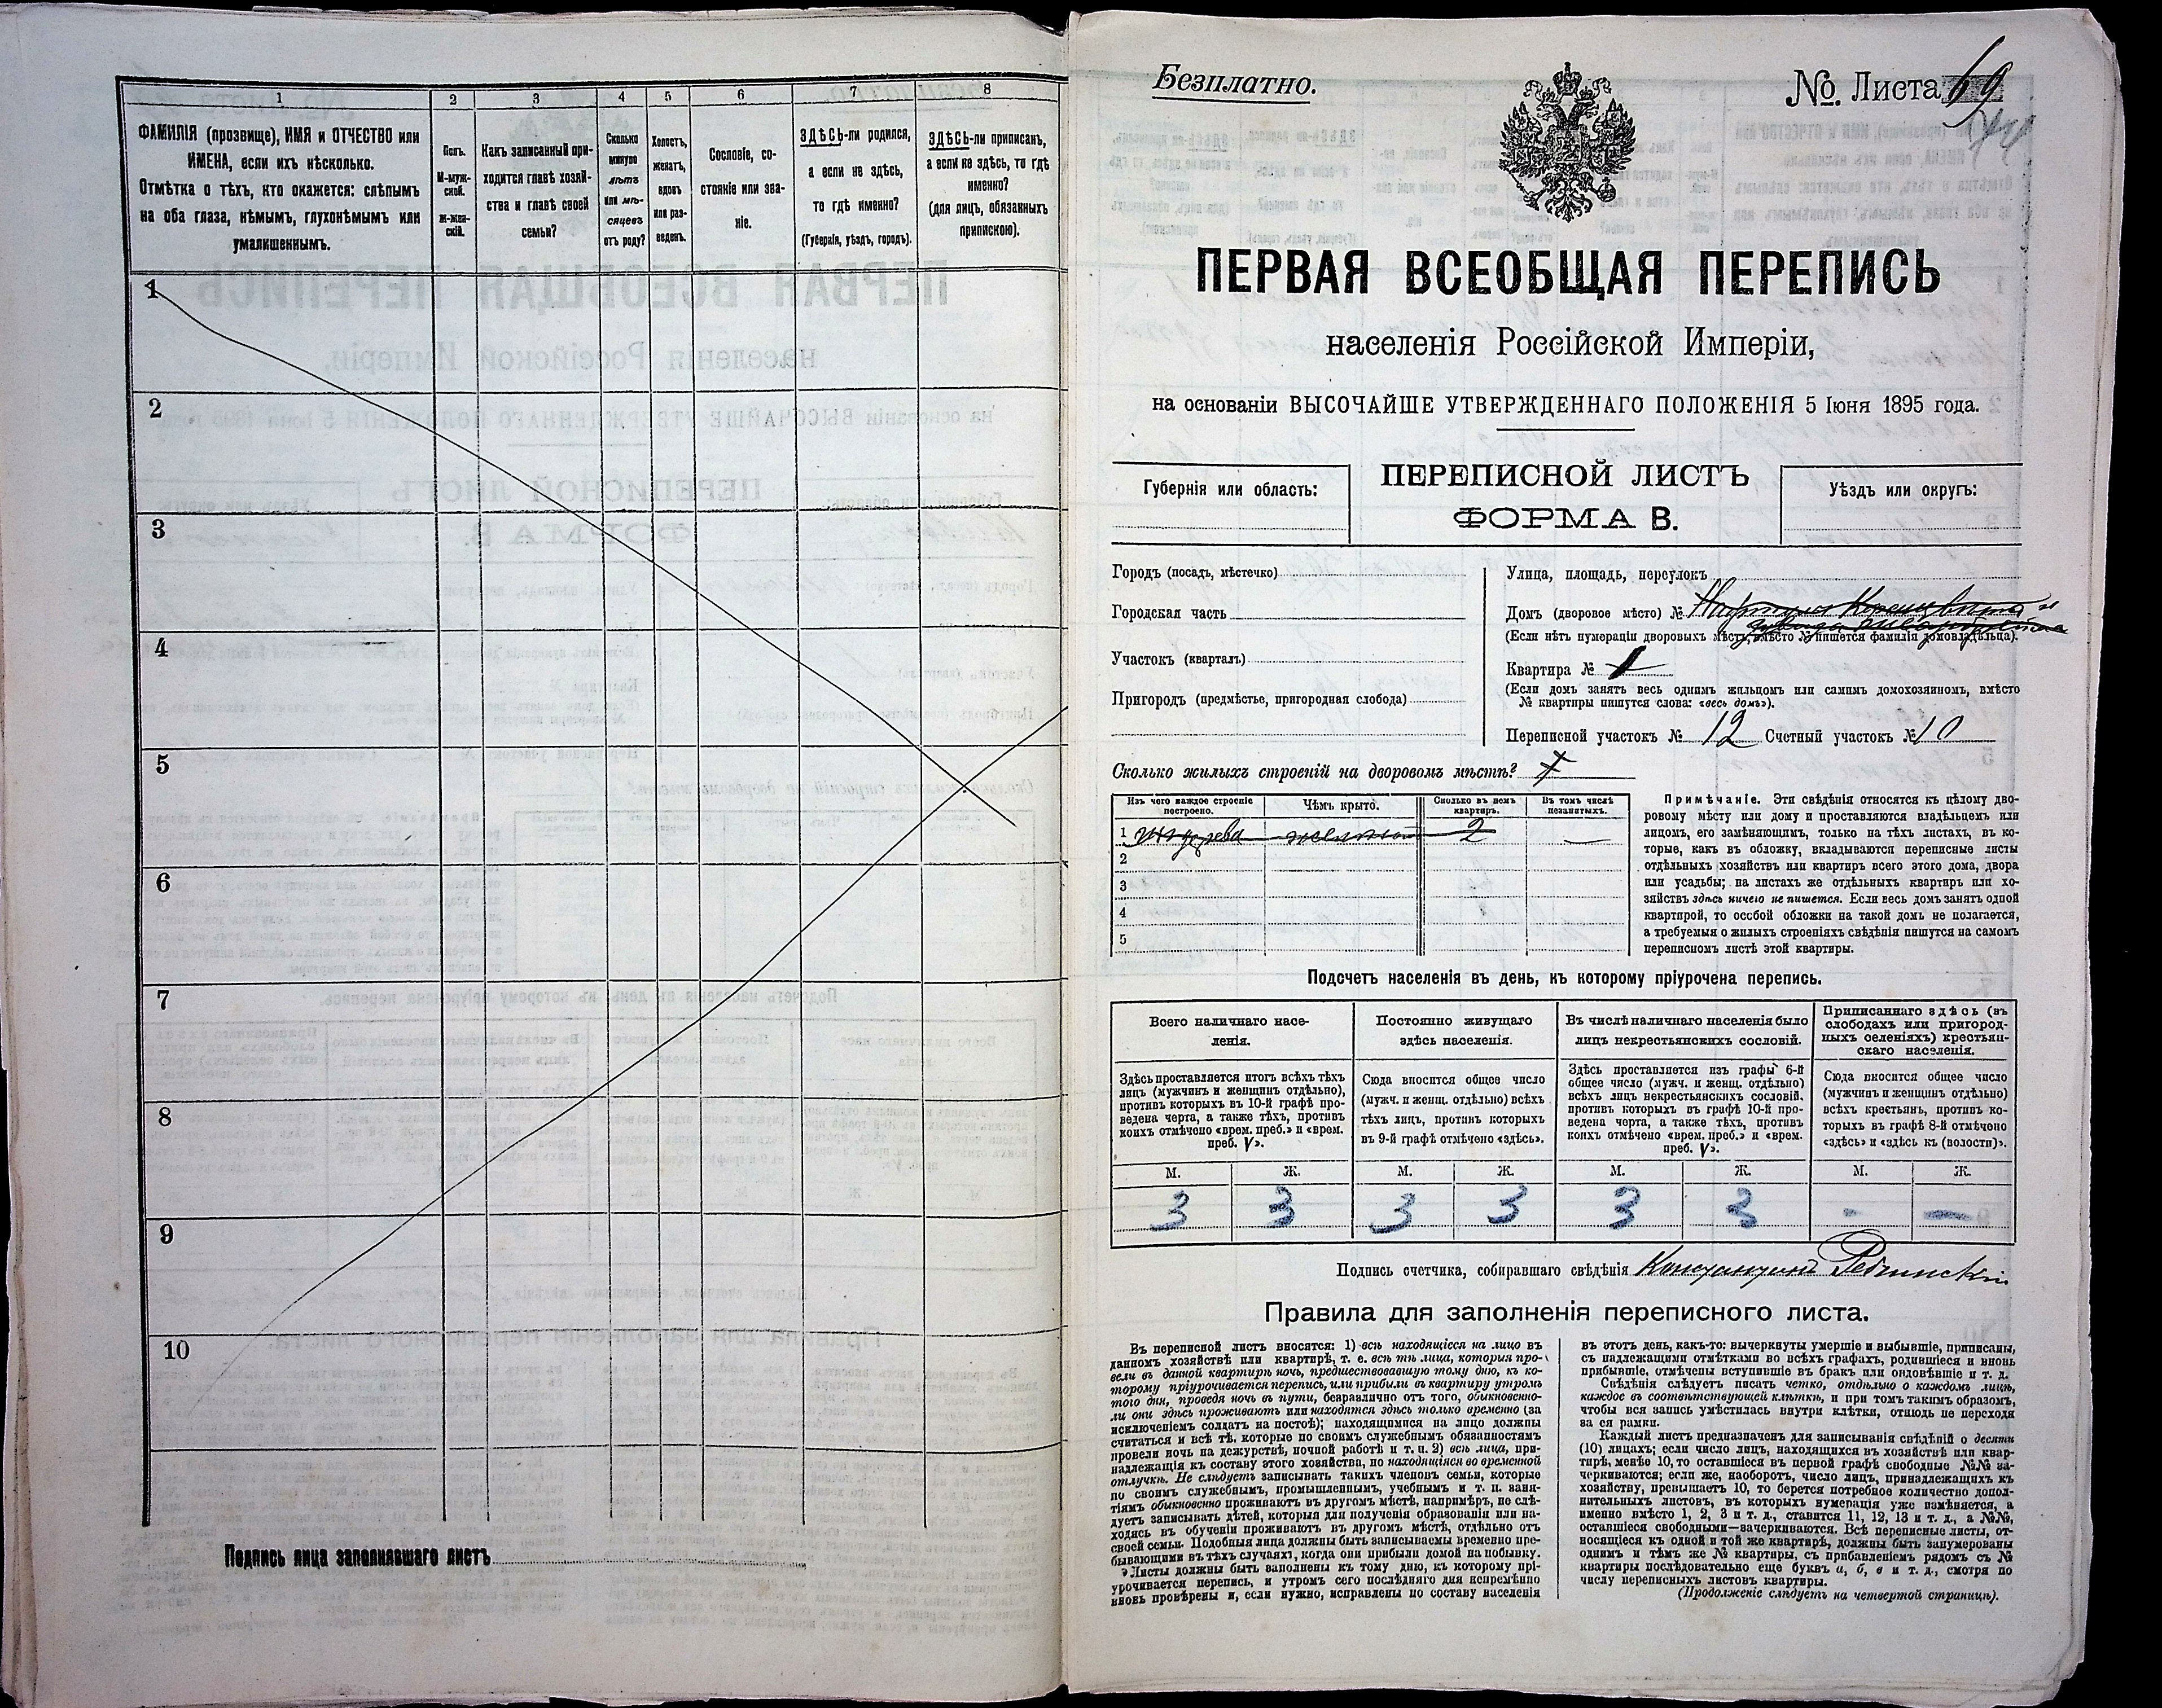 1 2 3 4 5 6 7 8
ФАМИЛІЯ (прозвище), ИМЯ и ОТЧЕСТВО или
ИМЕНА, если ихъ нѣсколько.
Отмѣтка о тѣхъ, кто окажется: слѣпымъ
на оба глаза, нѣмымъ, глухонѣмымъ или
умалишеннымъ.
Полъ.
М-муж-
ской.
ж-жен-
скій.
Какъ записанный при-
ходится главѣ хозяй-
ства и главѣ своей
семьи?
Сколько
минуло
лѣтъ
или мѣ-
сяцевъ
отъ роду?
Холостъ,
женатъ,
вдовъ
или раз-
веденъ.
Сословіе, со-
стояніе или зва-
ніе.
ЗДѢСЬ-ли родился,
а если не здѣсь,
то гдѣ именно?
(Губернія, уѣздъ, городъ).
ЗДѢСЬ-ли приписанъ,
а если не здѣсь, то гдѣ
именно?
(для лицъ, обязанныхъ
припискою).
1
2
3
4
5
6
7
8
9
10
Подпись лица заполнявшаго листъ
Безплатно.
№ Листа 69
ПЕРВАЯ ВСЕОБЩАЯ ПЕРЕПИСЬ
населенія Россійской Имперіи,
на основаніи ВЫСОЧАЙШЕ УТВЕРЖДЕННАГО ПОЛОЖЕНІЯ 5 Іюня 1895 года.
Губернія или область:
ПЕРЕПИСНОЙ ЛИСТЪ
ФОРМА В.
Уѣздъ или округъ:
Городъ (посадъ, мѣстечко)
Городская часть
Участокъ (кварталъ)
Пригородъ (предмѣстье, пригородная слобода)
Улица, площадь, переулокъ
Домъ (дворовое мѣсто) №
(Если нѣтъ нумераціи дворовыхъ мѣстъ, вмѣсто № пишется фамилія домовладѣльца).
Квартира № 1
(Если домъ занятъ весь однимъ жильцомъ или самимъ домохозяиномъ, вмѣсто
№ квартиры пишутся слова: «весь домъ»).
Переписной участокъ № 12 Счетный участокъ № 10
Сколько жилыхъ строеній на дворовомъ мѣстѣ?
Изъ чего каждое строеніе
построено.
Чѣмъ крыто.
Сколько въ немъ
квартиръ.
Въ томъ числѣ
незанятыхъ.
1 изъ дерева желѣзомъ 2 —
2
3
4
5
Примѣчаніе. Эти свѣдѣнія относятся къ цѣлому дво-
ровому мѣсту или дому и проставляются владѣльцемъ или
лицомъ, его замѣняющимъ, только на тѣхъ листахъ, въ ко-
торые, какъ въ обложку, вкладываются переписные листы
отдѣльныхъ хозяйствъ или квартиръ всего этого дома, двора
или усадьбы; на листахъ же отдѣльныхъ квартиръ или хо-
зяйствъ здѣсь ничего не пишется. Если весь домъ занятъ одной
квартирой, то особой обложки на такой домъ не полагается,
а требуемыя о жилыхъ строеніяхъ свѣдѣнія пишутся на самомъ
переписномъ листѣ этой квартиры.
Подсчетъ населенія въ день, къ которому пріурочена перепись.
Всего наличнаго насе-
ленія.
Здѣсь проставляется итогъ всѣхъ тѣхъ
лицъ (мужчинъ и женщинъ отдѣльно),
противъ которыхъ въ 10-й графѣ про-
ведена черта, а также тѣхъ, противъ
коихъ отмѣчено «врем. преб.» и «врем.
преб. V».
Постоянно живущаго
здѣсь населенія.
Сюда вносится общее число
(мужч. и женщ. отдѣльно) всѣхъ
тѣхъ лицъ, противъ которыхъ
въ 9-й графѣ отмѣчено «здѣсь».
Въ числѣ наличнаго населенія было
лицъ некрестьянскихъ сословій.
Здѣсь проставляется изъ графы 6-й
общее число (мужч. и женщ. отдѣльно)
всѣхъ лицъ некрестьянскихъ сословій,
противъ которыхъ въ графѣ 10-й про-
ведена черта, а также тѣхъ, противъ
коихъ отмѣчено «врем. преб.» и «врем.
преб. V».
Приписаннаго здѣсь (въ
слободахъ или пригород-
ныхъ селеніяхъ) крестьян-
скаго населенія.
Сюда вносится общее число
(мужчинъ и женщинъ отдѣльно)
всѣхъ крестьянъ, противъ ко-
торыхъ въ графѣ 8-й отмѣчено
«здѣсь» и «здѣсь къ (волости)».
М. Ж. М. Ж. М. Ж. М. Ж.
3 3 3 3 3 3 - —
Подпись счетчика, собиравшаго свѣдѣнія Константинъ
Правила для заполненія переписного листа.
Въ переписной листъ вносятся: 1) всѣ находящіеся на лицо въ
данномъ хозяйствѣ или квартирѣ, т. е. всѣ тѣ лица, которыя про-
вели въ данной квартирѣ ночь, предшествовавшую тому дню, къ ко-
торому пріурочивается перепись, или прибыли въ квартиру утромъ
того дня, проведя ночь въ пути, безразлично отъ того, обыкновенно-
ли они здѣсь проживаютъ или находятся здѣсь только временно (за
исключеніемъ солдатъ на постоѣ); находящимися на лицо должны
считаться и всѣ тѣ, которые по своимъ служебнымъ обязанностямъ
провели ночь на дежурствѣ, ночной работѣ и т. п. 2) всѣ лица, при-
надлежащія къ составу этого хозяйства, но находящіяся во временной
отлучкѣ. Не слѣдуетъ записывать такихъ членовъ семьи, которые
по своимъ служебнымъ, промышленнымъ, учебнымъ и т. п. заня-
тіямъ обыкновенно проживаютъ въ другомъ мѣстѣ, напримѣръ, не слѣ-
дуетъ записывать дѣтей, которыя для полученія образованія или на-
ходясь въ обученіи проживаютъ въ другомъ мѣстѣ, отдѣльно отъ
своей семьи. Подобныя лица должны быть записываемы временно пре-
бывающими въ тѣхъ случаяхъ, когда они прибыли домой на побывку.
Листы должны быть заполнены къ тому дню, къ которому прі-
урочивается перепись, и утромъ сего послѣдняго дня непремѣнно
вновь провѣрены и, если нужно, исправлены по составу населенія
въ этотъ день, какъ-то: вычеркнуты умершіе и выбывшіе, приписаны,
съ надлежащими отмѣтками во всѣхъ графахъ, родившіеся и вновь
прибывшіе, отмѣчены вступившіе въ бракъ или овдовѣвшіе и т. д.
Свѣдѣнія слѣдуетъ писать четко, отдѣльно о каждомъ лицѣ,
каждое въ соотвѣтствующей клѣткѣ, и при томъ такимъ образомъ,
чтобы вся запись умѣстилась внутри клѣтки, отнюдь не переходя
за ея рамки.
Каждый листъ предназначенъ для записыванія свѣдѣній о десяти
(10) лицахъ; если число лицъ, находящихся въ хозяйствѣ или квар-
тирѣ, менѣе 10, то оставшіеся въ первой графѣ свободные №№ за-
черкиваются; если же, наоборотъ, число лицъ, принадлежащихъ къ
хозяйству, превышаетъ 10, то берется потребное количество допол-
нительныхъ листовъ, въ которыхъ нумерація уже измѣняется, а
именно вмѣсто 1, 2, 3 и т. д., ставится 11, 12, 13 и т. д., а №№,
оставшіеся свободными—зачеркиваются. Всѣ переписные листы, от-
носящіеся къ одной и той же квартирѣ, должны быть занумерованы
однимъ и тѣмъ же № квартиры, съ прибавленіемъ рядомъ съ №
квартиры послѣдовательно еще буквъ а, б, в и т. д., смотря по
числу переписныхъ листовъ квартиры.
(Продолженіе слѣдуетъ на четвертой страницѣ).